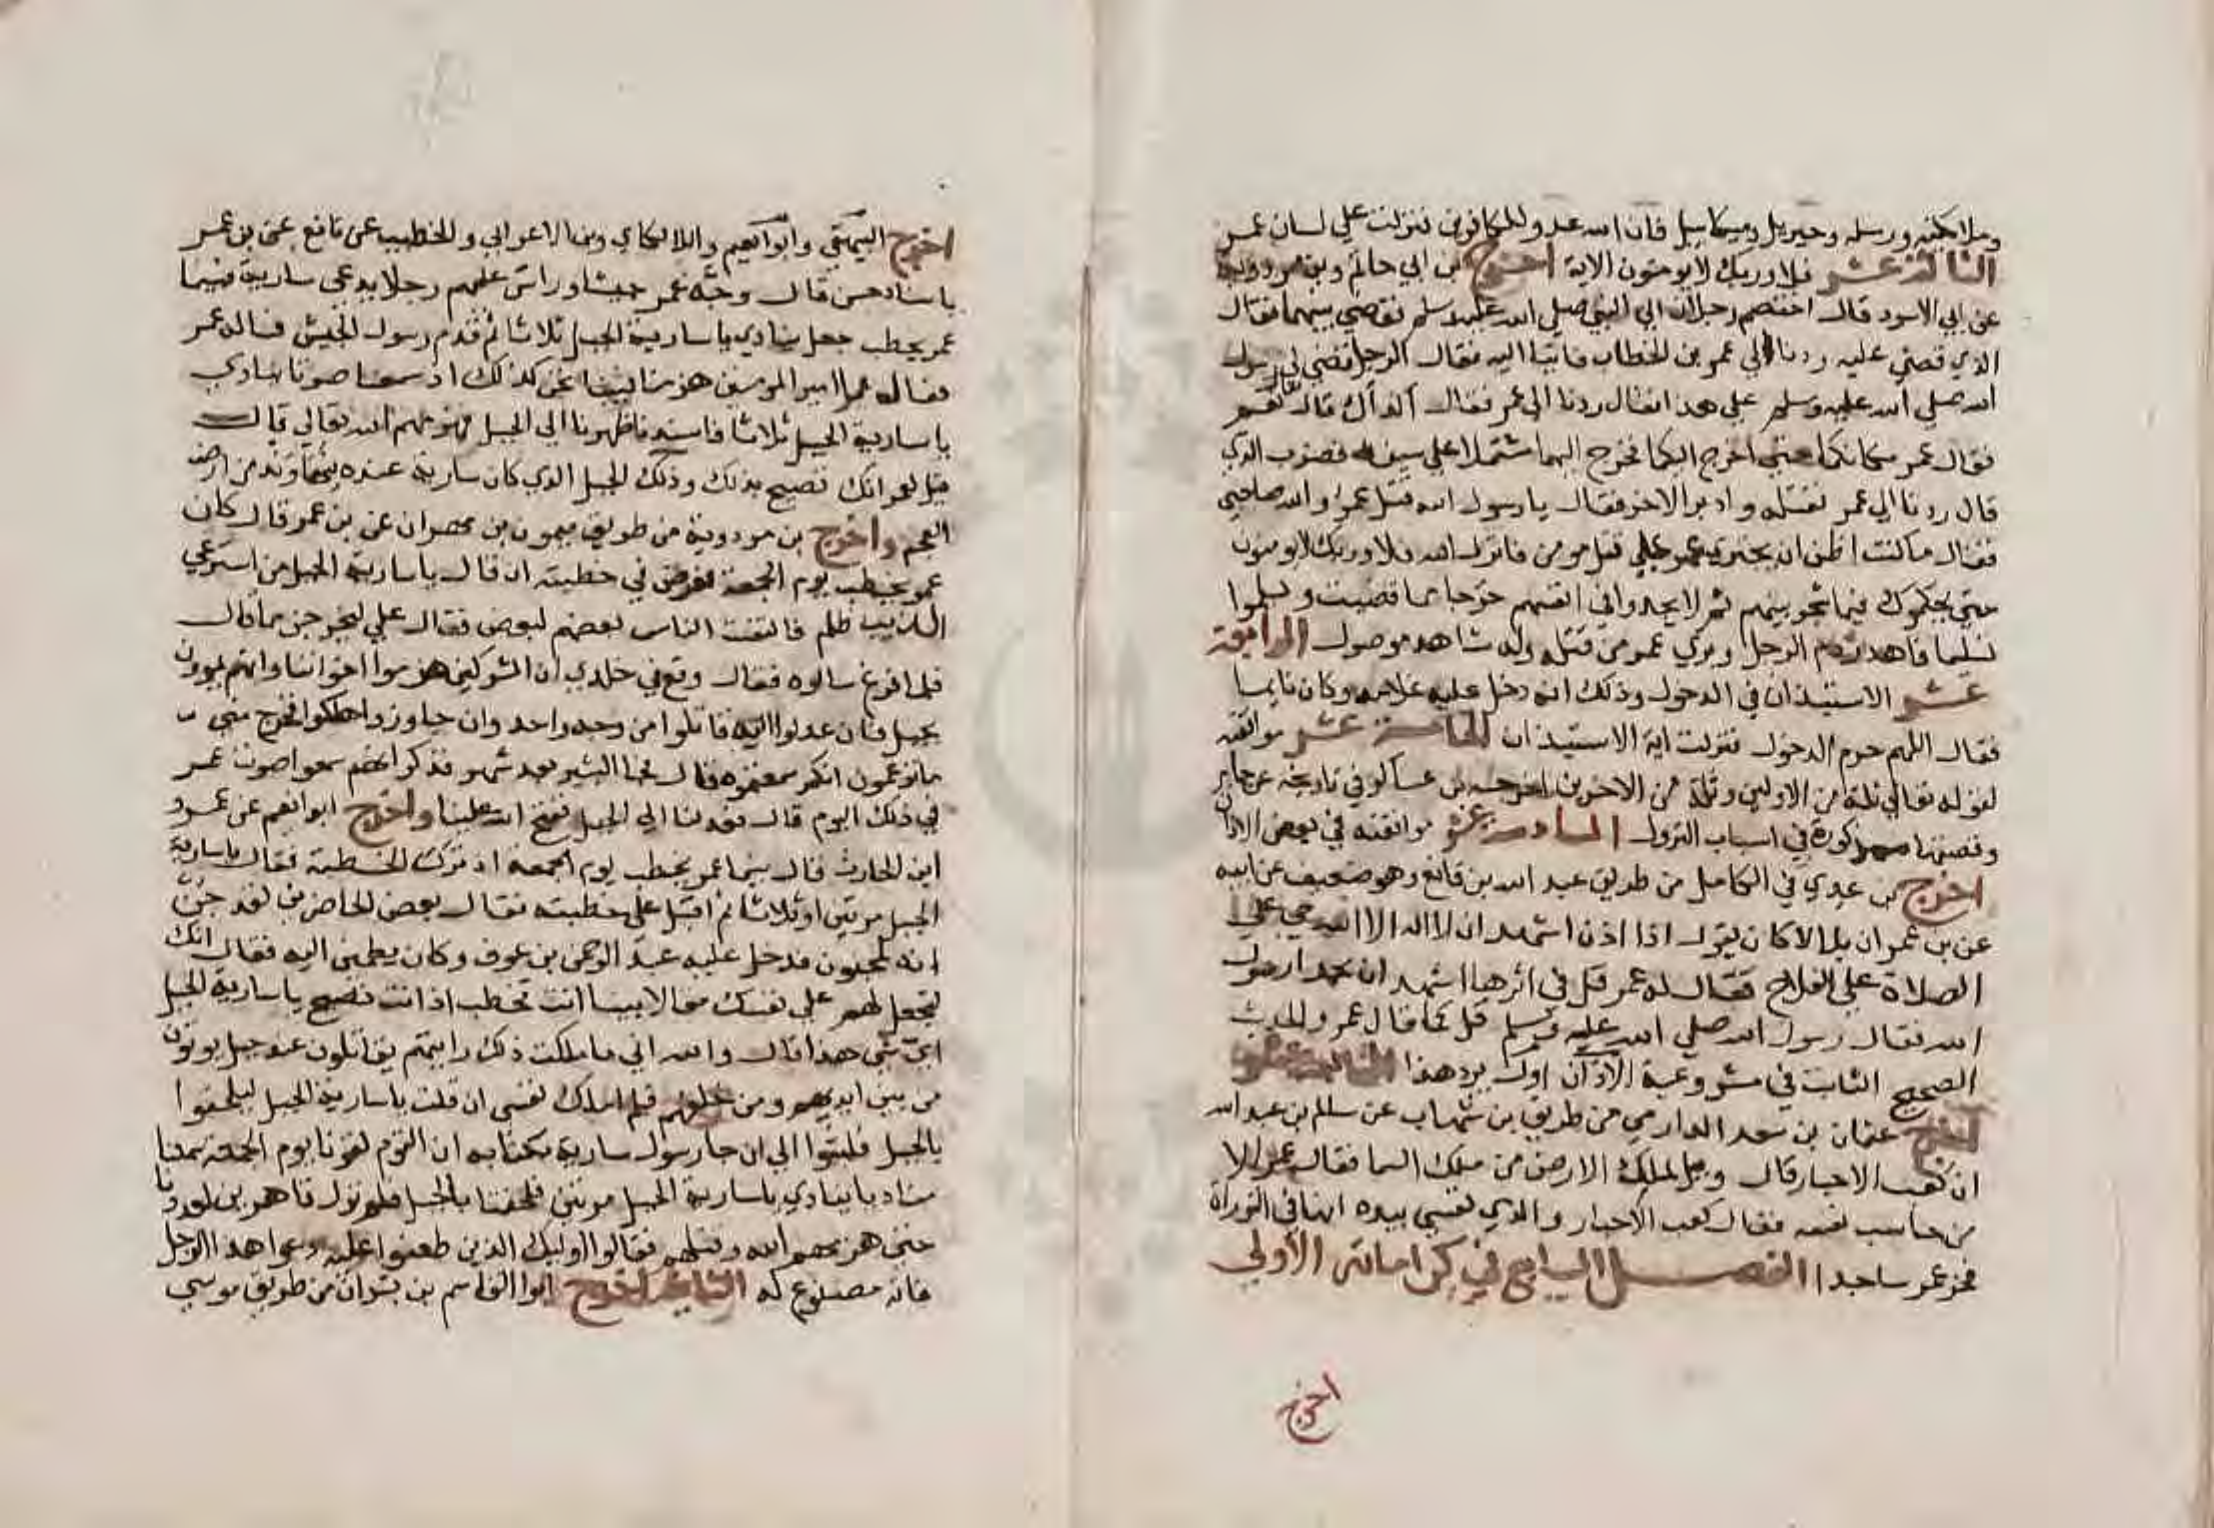 وملائكته ورسله وجبريل وميكاييل فان الله عدو للكافرين فنزلت علي لسان عمر
الثالثة عشر فلا وربك لا يومنون الاية اخرج بن ابي حاتم وبن مردوية
عن ابي الاسود قال اختصم رجلان الي النبي صلي الله عليه وسلم فقضي بينهما فقال
الذي قضي عليه ردنا الي عمر بن الخطاب فاتيا اليه فقال الرجل قضي لي رسول
الله صلي الله عليه وسلم علي هذا فقال ردنا الي عمر فقال اكذاك قال نعم
فقال عمر مكانكما حتي اخرج اليكما فخرج اليهما مشتملا علي سيفه فضرب الذي
قال ردنا الي عمر فقتله وادبر الاخر فقال يا رسول الله قتل عمر والله صاحبي
فقال ما كنت اظن ان يجتري عمر علي قتل مومن فانزل الله فلا وربك لا يومنون
حتي يحكموك فيما شجر بينهم ثم لا يجدوا في انفسهم حرجا مما قضيت ويسلموا
تسليما فاهدر دم الرجل وبري عمر من قتله وله شاهد موصول الرابعة
عشر الاستيذان في الدخول وذلك انه دخل عليه غلامه وكان نايما
فقال اللهم حرم الدخول فنزلت اية الاستيذان الخامسة عشر موافقته
لقوله تعالي ثلة من الاولين وثلة من الاخرين اخرجه بن عساكر في تاريخه عن جابر
وقصتها مذكورة في اسباب النزول السادسة عشر موافقته في بعض الاذان
اخرج بن عدي في الكامل من طريق عبد الله بن نافع وهو ضعيف عن ابيه
عن بن عمر ان بلالا كان يقول اذا اذن اشهد ان لا اله الا الله حي علي
الصلاة علي الفلاح فقال له عمر قل في اثرها اشهد ان محمدا رسول
الله فقال رسول الله صلي الله عليه وسلم قل كما قال عمر والحديث
الصحيح الثابت في مشروعية الاذان اول يرد هذا
اخرج عثمان بن سعد الدارمي من طريق بن شهاب عن سالم بن عبد الله
ان كعب الاحبار قال ويل لملك الارض من ملك السما فقال عمر الا
من حاسب نفسه فقال كعب الاحبار والذي نفسي بيده انها في التوراة
فخر عمر ساجدا الفصل السابع في كراماته الاولي
اخرج
اخرج البيهقي وابوا نعيم واللالكاي وبن الاعرابي والخطيب عن نافع عن بن عمر
باسناد حسن قال وجه عمر جيشا وراس عليهم رجلا يدعي سارية فبينما
عمر يخطب جعل ينادي يا سارية الجبل ثلاثا ثم قدم رسول الجيش فساله عمر
فقال يا امير المومنين هزمنا فبينا نحن كذلك اذ سمعنا صوتا ينادي
يا سارية الجبل ثلاثا فاسندنا ظهورنا الي الجبل فهزمهم الله تعالي قال
قيل لعمر انك تصيح بذلك وذلك الجبل الذي كان سارية عنده بنهاوند من ارض
العجم واخرج بن مردوية من طريق ميمون بن مهران عن بن عمر قال كان
عمر يخطب يوم الجمعة فعرض في خطبته ان قال يا سارية الجبل من استرعي
الذيب ظلم فالتفت الناس بعضهم لبعض فقال علي ليخرجن مما قال
فلما فرغ سالوه فقال وقع في خلدي ان المشركين هزموا اخواننا وانهم يمرون
بجبل فان عدلوا اليه قاتلوا من وجه واحد وان جاوزوا هلكوا فخرج مني
ما تزعمون انكم سمعتموه قال فجا البشير بعد شهر فذكر انهم سمعوا صوت عمر
في ذلك اليوم قال فعدلنا الي الجبل ففتح الله علينا واخرج ابوا نعيم عن عمرو
ابن الحارث قال بينما عمر يخطب يوم الجمعة اذ ترك الخطبة فقال يا سارية
الجبل مرتين او ثلاثا ثم اقبل علي خطبته فقال بعض الحاضرين لقد جن
انه لمجنون فدخل عليه عبد الرحمن بن عوف وكان يطمين اليه فقال انك
لتجعل لهم علي نفسك مقالا بينا انت تخطب اذ انت تصيح يا سارية الجبل
اي شي هذا قال والله اني ما ملكت ذلك رايتهم يقاتلون عند جبل يوتون
من بين ايديهم ومن خلفهم فلم املك نفسي ان قلت يا سارية الجبل ليلحقوا
بالجبل فلبثوا الي ان جا رسول سارية بكتابه ان القوم لقونا يوم الجمعة سمعنا
مناديا ينادي يا سارية الجبل مرتين فلحقنا بالجبل فلم نزل قاهرين لعدونا
حتي هزمهم الله وقتلهم فقالوا اوليك الذين طعنوا عليه دعوا هذا الرجل
فانه مصنوع له الثانية اخرج ابوا القاسم بن بشران من طريق موسي